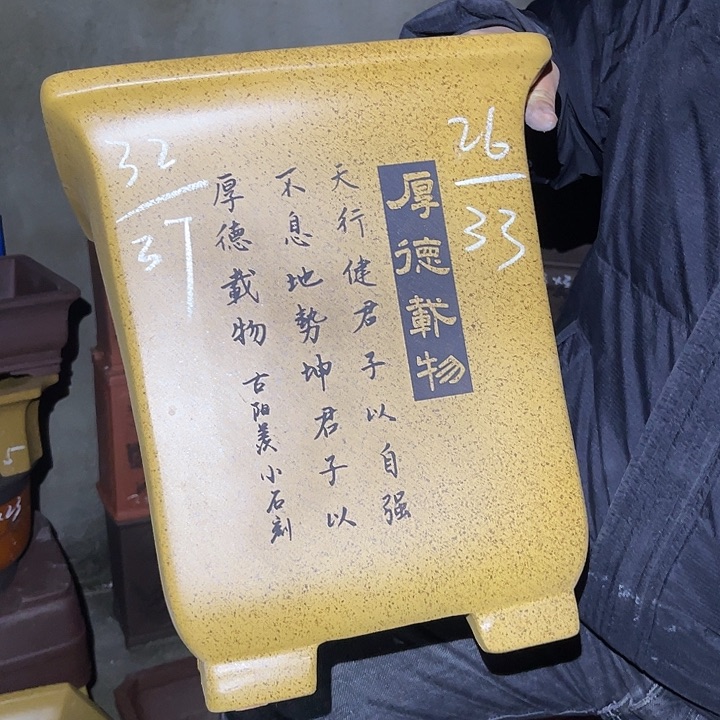 厚德載物
天行健君子以自强
不息地勢坤君子以
厚德載物
古阳羡小石刻
26
33
32
37